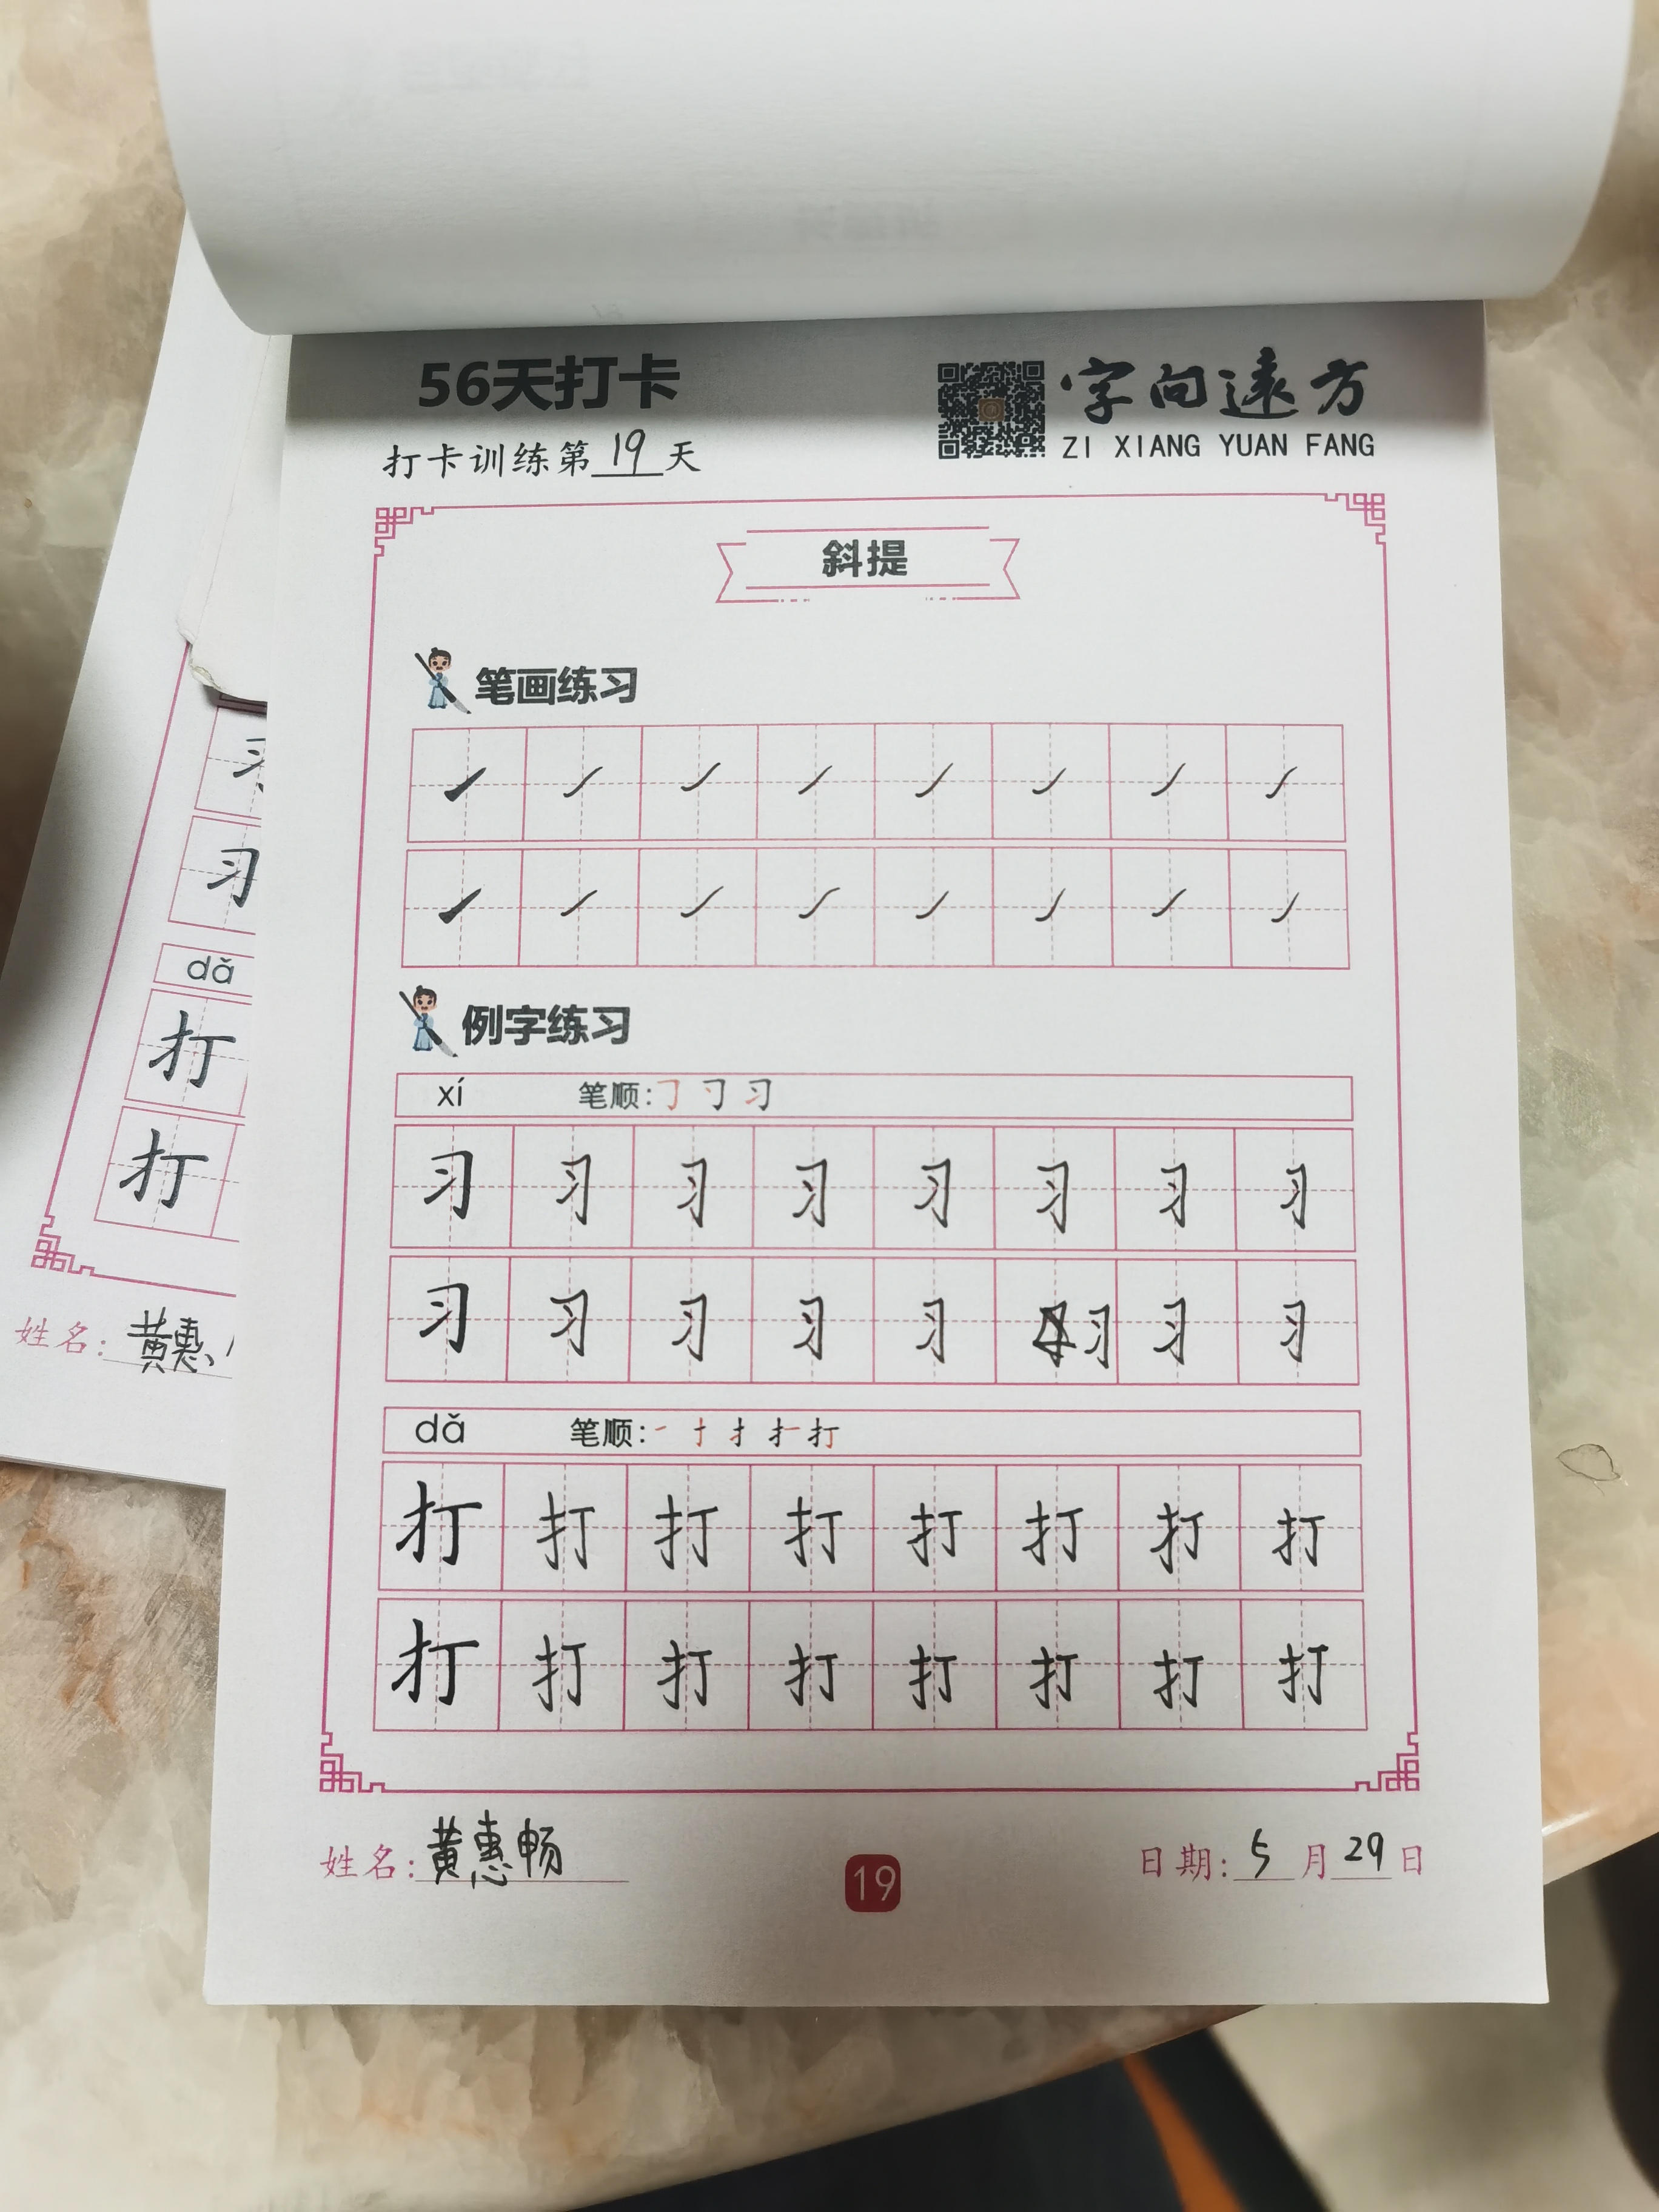 56天打卡
字向遠方
ZI XIANG YUAN FANG
打卡训练第19天
斜提
笔画练习
例字练习
xí 笔顺:㇆ 习
习 习 习 习 习 习 习 习
习 习 习 习 习 习 习 习
dǎ 笔顺:一 扌 打
打 打 打 打 打 打 打 打
打 打 打 打 打 打 打 打
姓名:黄惠畅
19
日期:5月29日
习
习
dǎ
打
打
姓名:黄惠